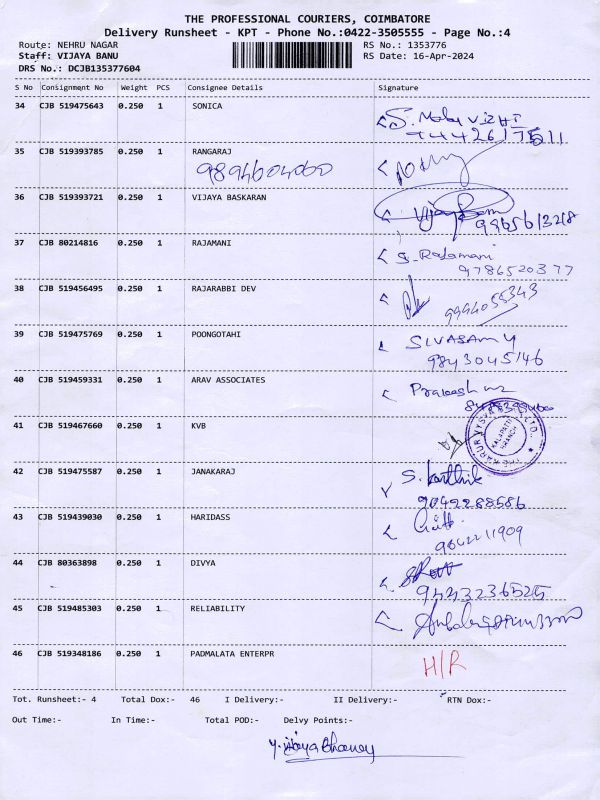 THE PROFESSIONAL COURIERS, COIMBATORE
Delivery Runsheet - KPT - Phone No.:0422-3505555 - Page No.:4
Route: NEHRU NAGAR RS No.: 1353776
Staff: VIJAYA BANU RS Date: 16-Apr-2024
DRS No.: DCJB135377604
S No Consignment No Weight PCS Consignee Details Signature
34 CJB 519475643 0.250 1 SONICA S.
9442617511
35 CJB 519393785 0.250 1 RANGARAJ
9894604060
36 CJB 519393721 0.250 1 VIJAYA BASKARAN
9965613218
37 CJB 80214816 0.250 1 RAJAMANI S. Rajamani
9786520377
38 CJB 519456495 0.250 1 RAJARABBI DEV
9994055343
39 CJB 519475769 0.250 1 POONGOTAHI SIVASAMY
9843045146
40 CJB 519459331 0.250 1 ARAV ASSOCIATES
41 CJB 519467660 0.250 1 KVB
KALAPATTI
BRANCH
42 CJB 519475587 0.250 1 JANAKARAJ S. Karthik
9042288586
43 CJB 519439030 0.250 1 HARIDASS
9042211909
44 CJB 80363898 0.250 1 DIVYA
9443236525
45 CJB 519485303 0.250 1 RELIABILITY
46 CJB 519348186 0.250 1 PADMALATA ENTERPR H/R
Tot. Runsheet:- 4 Total Dox:- 46 I Delivery:- II Delivery:- RTN Dox:-
Out Time:- In Time:- Total POD:- Delvy Points:-